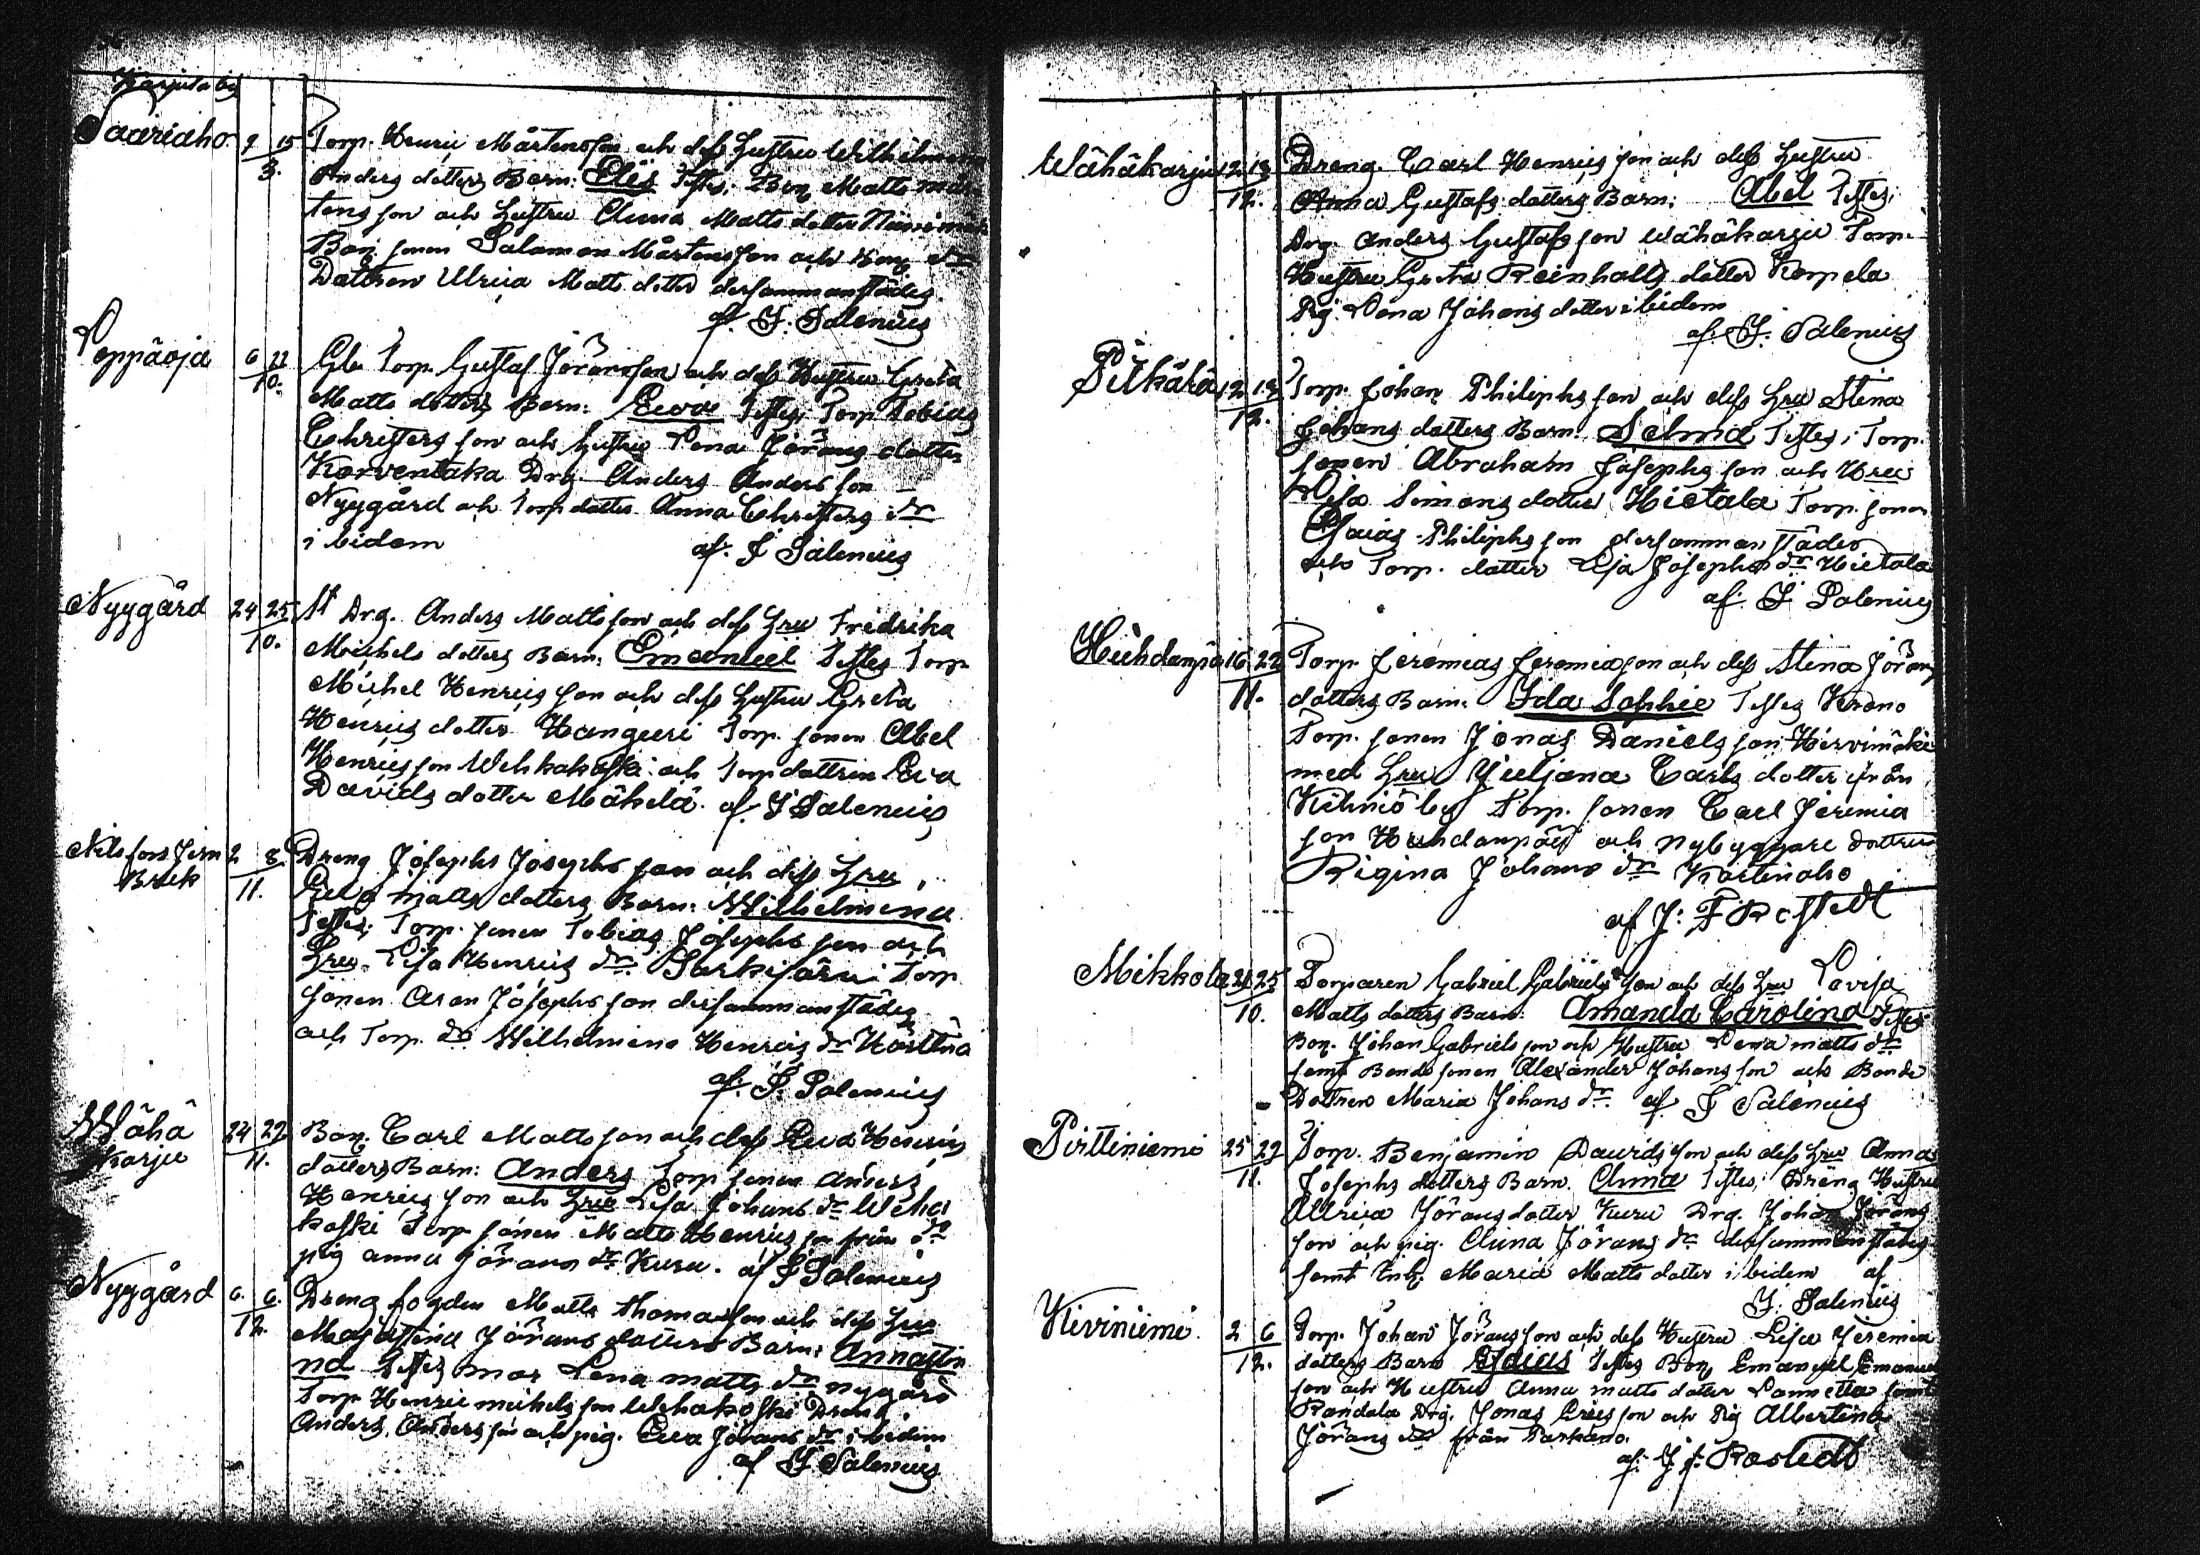 Karjula by
Saariaho. 9 15 Torp. Henric Mårtensson och dess hustru Wilhelmina
3. Anders dotters Barn: Elis Testes: Bon. Matts Mår-
tens son och hustru Anna Matts dotter
Bon. sonen Salomon Mårtensson och Bon. dr
Dottren Ulrica Matts dotter dersammanstädes
af. J. Salenius
Poppäoja 6 22 Gla Torp. Gustaf Jöransson och dess Hustru Greta
10. Matts dotters Barn: Ewa Testes, Torp. Tobias
Christers son och hustru Lena Jörans dotter
Korventaka Drg. Anders Anders son
Nyygård och Torp dotter Anna Christers dr
ibidem af. J Salenius
Nyygård 24 25 St Drg. Anders Matts son och dess Hru Fredrika
10. Michels dotters Barn: Emanuel Testes Torp
Michel Henrics son och dess hustru Greta
Henrics dotter Kangeeri Torp. sonen Abel
Henrics son Wehkakoski och Torp dottren Eva
Davids dotter Mäkelä. af. J Salenius
Nilsfors Jern 2 8. Dreng Josephs Josephs son och dess Hru
Bruk 11. Eva Matts dotters Barn: Wilhelmina
Testes: Torp. sonen Tobias Josephs son och
Hru. Lisa Henrics dr Särkijärvi Torp
sonen Aron Josephs son dersammanstädes
och Torp. dr Wilhelmina Henrics dr
af. J. Salenius
Wähä 24 29 Bon. Carl Matts son och dess Eva Henrics
Karju 11. dotters Barn: Anders Torp sonen Anders
Henrics son och Hru Lisa Johans dr Weha
koski Torp sonen Matts Henrics son från dr
pig Anna Jörans dr Kuru. af J Salenius
Nyygård 6. 6. Dreng fogden Matts Thomasson och dess Hru
12. Majastina Jörans dotters Barn: Annastin
na Testes mor Lena Matts dr Nygård
Torp Henric Michels son Wehakoski Dreng
Anders Anders son och pig. Eva Jörans dr ibidem
af J. Salenius
Wähäkarju 12 13 Dreng. Carl Henrics son och dess hustru
12. Anna Gustafs dotters Barn: Abel Testes:
Drg. Anders Gustafs son Wähäkarju Torp.
Hustru Greta Reinholts dotter Korpela
Pig. Lena Johans dotter ibidem
af. J. Salenius
Pitkäkä 12 13 Torp. Johan Philiphs son och dess Hru Stina
12. Johans dotters Barn: Selma Testes: Torp.
sonen Abraham Josephs son och Hru
Lisa Simons dotter Hietala Torp. sonen
Esaias Philiphs son dersammanstädes
och Torp. dotter Lisa Josephs dr Hietala
af. J Salenius
Huhdanpä 16 22 Torp. Jeremias Jeremiason och dess Stina Jörans
11. dotters Barn: Ida Sophie Testes Krono
Torp. sonen Jonas Daniels son Hirvimäki
med Hru Juljana Carls dotter från
Kihniö by Torp. sonen Carl Jeremia
son Huhdanpää och nybyggare dottren
Rigina Johans dr
af J: F Rostedt
Mikkola 24 25 Torparen Gabriel Gabriels son och dess Hru Lovisa
10. Matts dotters Barn: Amanda Carolina Testes
Bon. Johan Gabriels son och Hustru Lena Matts dr
samt Bonde sonen Alexander Johans son och Bonde
Dottren Maria Johans dr. af J Salenius
Pirttiniemi 25 29 Torp. Benjamin Davids son och dess Hru Anna
11. Josephs dotters Barn. Anna Testes: Dräng Hustru
Ulrica Jörans dotter Kuru Drg. Johan Jörans
son och pig. Anna Jörans dr dersammanstädes
samt Enk. Maria Matts dotter ibidem af
J. Salenius
Kiviniemi. 2 6 Torp. Johan Jörans son och dess Hustru Lisa Jeremia
12. dotters Barn Esaias Testes Bon. Emanuel Emanuel
son och Hustru Anna Matts dotter samt
Randala Drg. Jonas Erics son och Pig Albertina
Jörans dr från Parkano.
af. J f. Rostedt